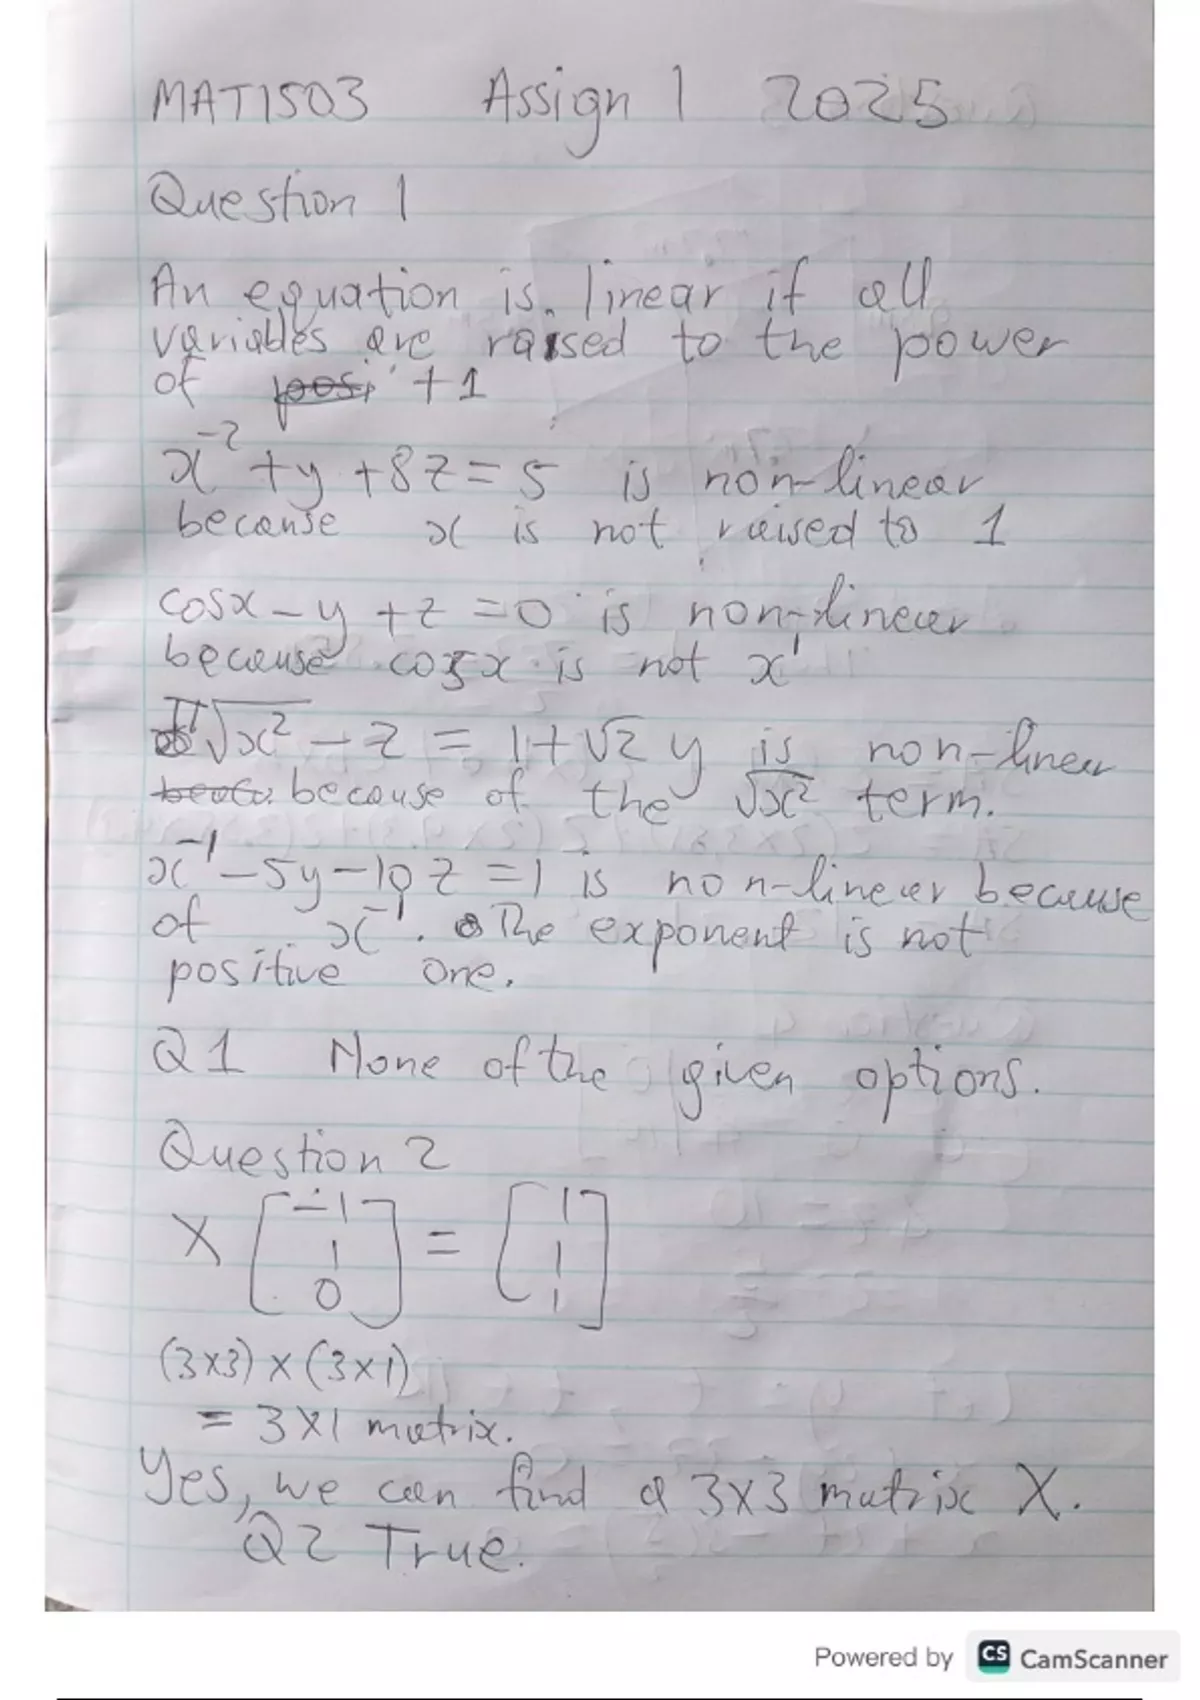 MAT1503 Assign 1 2025
Question 1
An equation is linear if all
variables are raised to the power
of posi +1
x⁻² + y + 8z = 5 is non-linear
because x is not raised to 1
cosx - y + z = 0 is non-linear
because cosx is not x¹
π√x² - z = 1 + √2 y is non-linear
because because of the √x² term.
x⁻¹ - 5y - 10z = 1 is non-linear because
of x⁻¹. The exponent is not
positive one.
Q1 None of the given options.
Question 2
X [-1 1 0] = [1 1 1]
(3x3) x (3x1)
= 3x1 matrix.
Yes, we can find a 3x3 matrix X.
Q2 True.
Powered by CS CamScanner